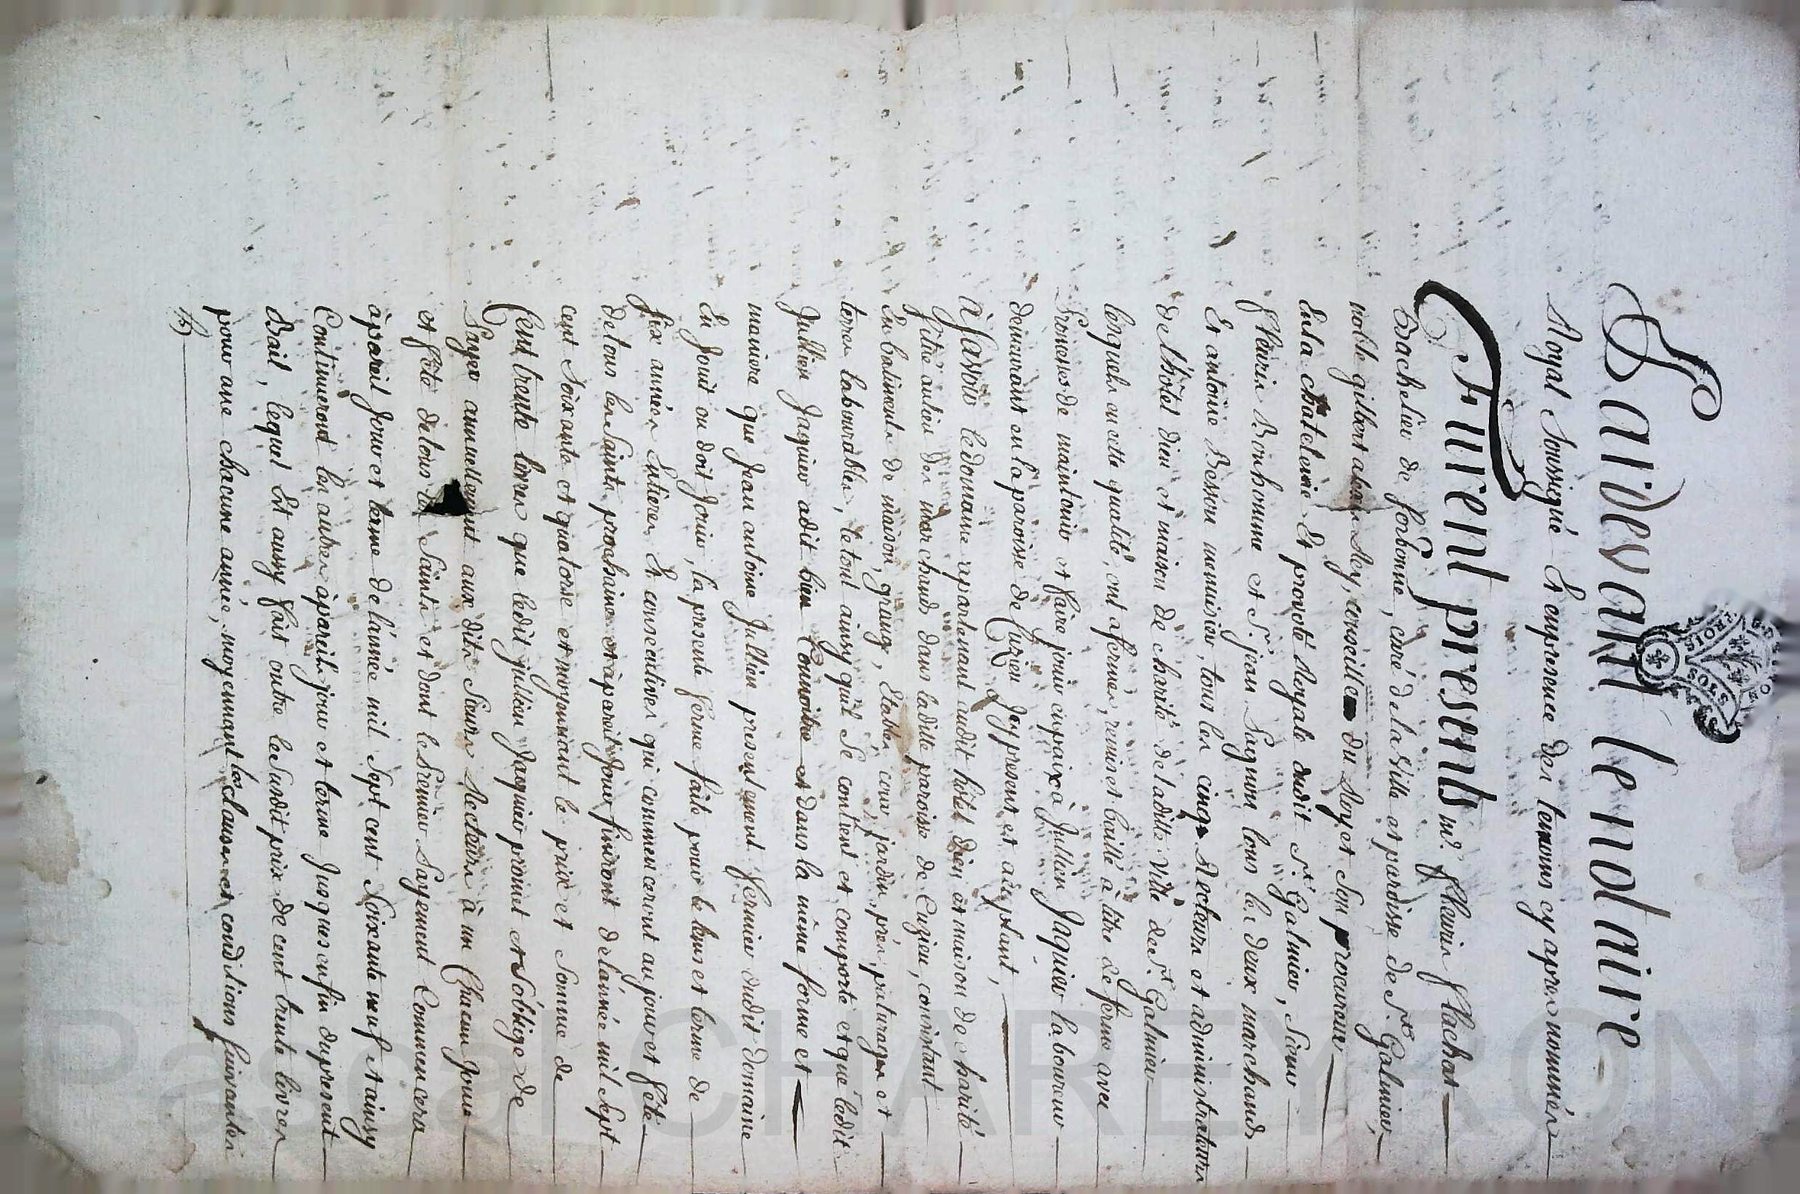 Pardevant le notaire
Royal Soussigné Et enpresence des temoins cy apres nommés
Furent presents mre. fleury flachat
Bachelier de sorbonne, curé de la Ville et paroisse de St. Galmier,
noble gilbert Rey, conseiller du Roy et son procureur
En la chatelenie Et prevoté Royale dudit St. Galmier, Sieur
fleury Bonhomme et Sr. jean Sagnon tous les deux marchands
Et antoine Besson menuisier, tous les cinqs Recteurs et administrateurs
de l'hôtel dieu et maison de charité de ladite Ville de St. Galmier
lesquels en cette qualité, ont afermé, remis et baillé à titre de ferme avec
Promesse de maintenir et faire jouir en paix à Jullien Jaquier laboureur
demeurant en la paroisse de Cuzieu Jcy present et acceptant,
à Savoir le domaine apartenant audit hôtel dieu et maison de charité
Situé au lieu des marchands dans ladite paroisse de Cuzieu, consistant
En batiments de maison, grange, Etables, cour, jardin, prés, paturages et
terres labourables, le tout ainsy qu'il Se contient et comporte et que ledit
Jullien Jaquier adit bien Connoitre et dans la même forme et
maniere que Jean antoine Jullien presentement fermier dudit domaine
En Jouit ou doit Jouir, la presente ferme faite pour le tems et terme de
Six années Entieres Et consecutives qui commenceront au jour et fete
de tous les Saints prochaine et à pareil Jour finiront de l'année mil Sept
cent Soixante et quatorse et moyennant le prix et Somme de
Cent trente livres que ledit jullien Jaquier promet et S'oblige de
Payer annuellement aux dits Sieurs Recteurs à un Chacun Jour
et fête de tous les Saints et dont le Premier Payement Commencera
à pareil Jour et terme de l'année mil Sept cent Soixante neuf et ainsy
Continueront les autres à pareils jour et terme Jusques en fin du present
Bail, lequel Est aussy fait outre le Susdit prix de cent trente livres
pour une chacune année, moyennant les clauses et conditions Suivantes
DE LYON
TROIS
Pascal CHAREYRON